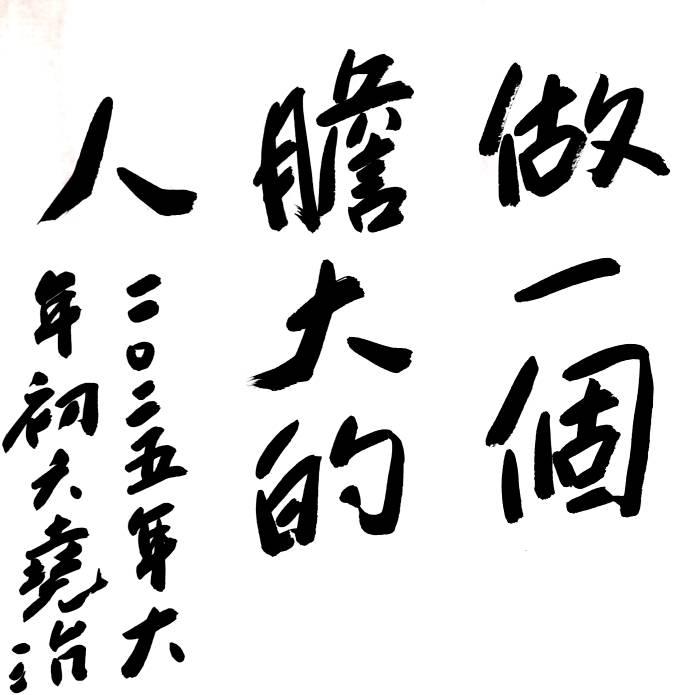 做一個
膽大的
人
二〇二五年大
年初六堯治